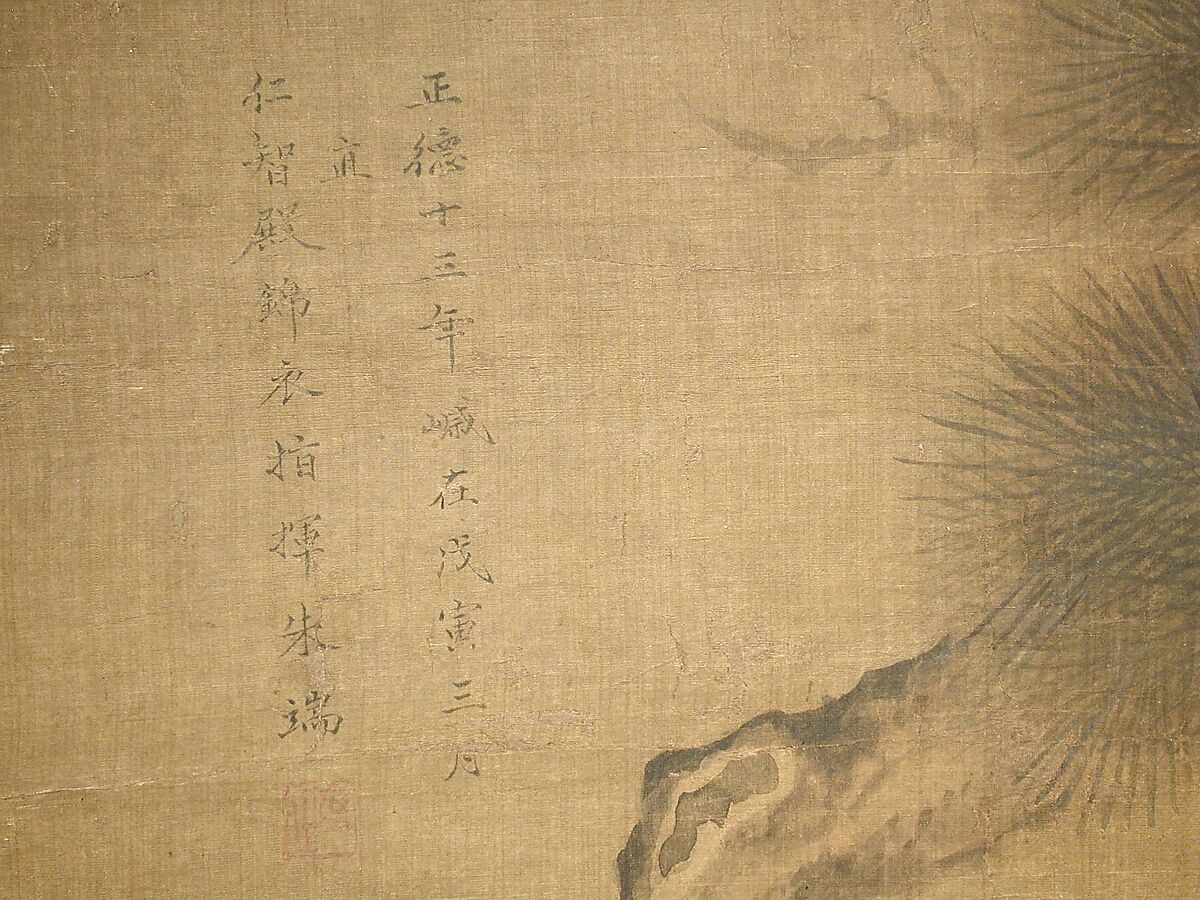 正德十三年歲在戊寅三月
直
仁智殿錦衣指揮朱端